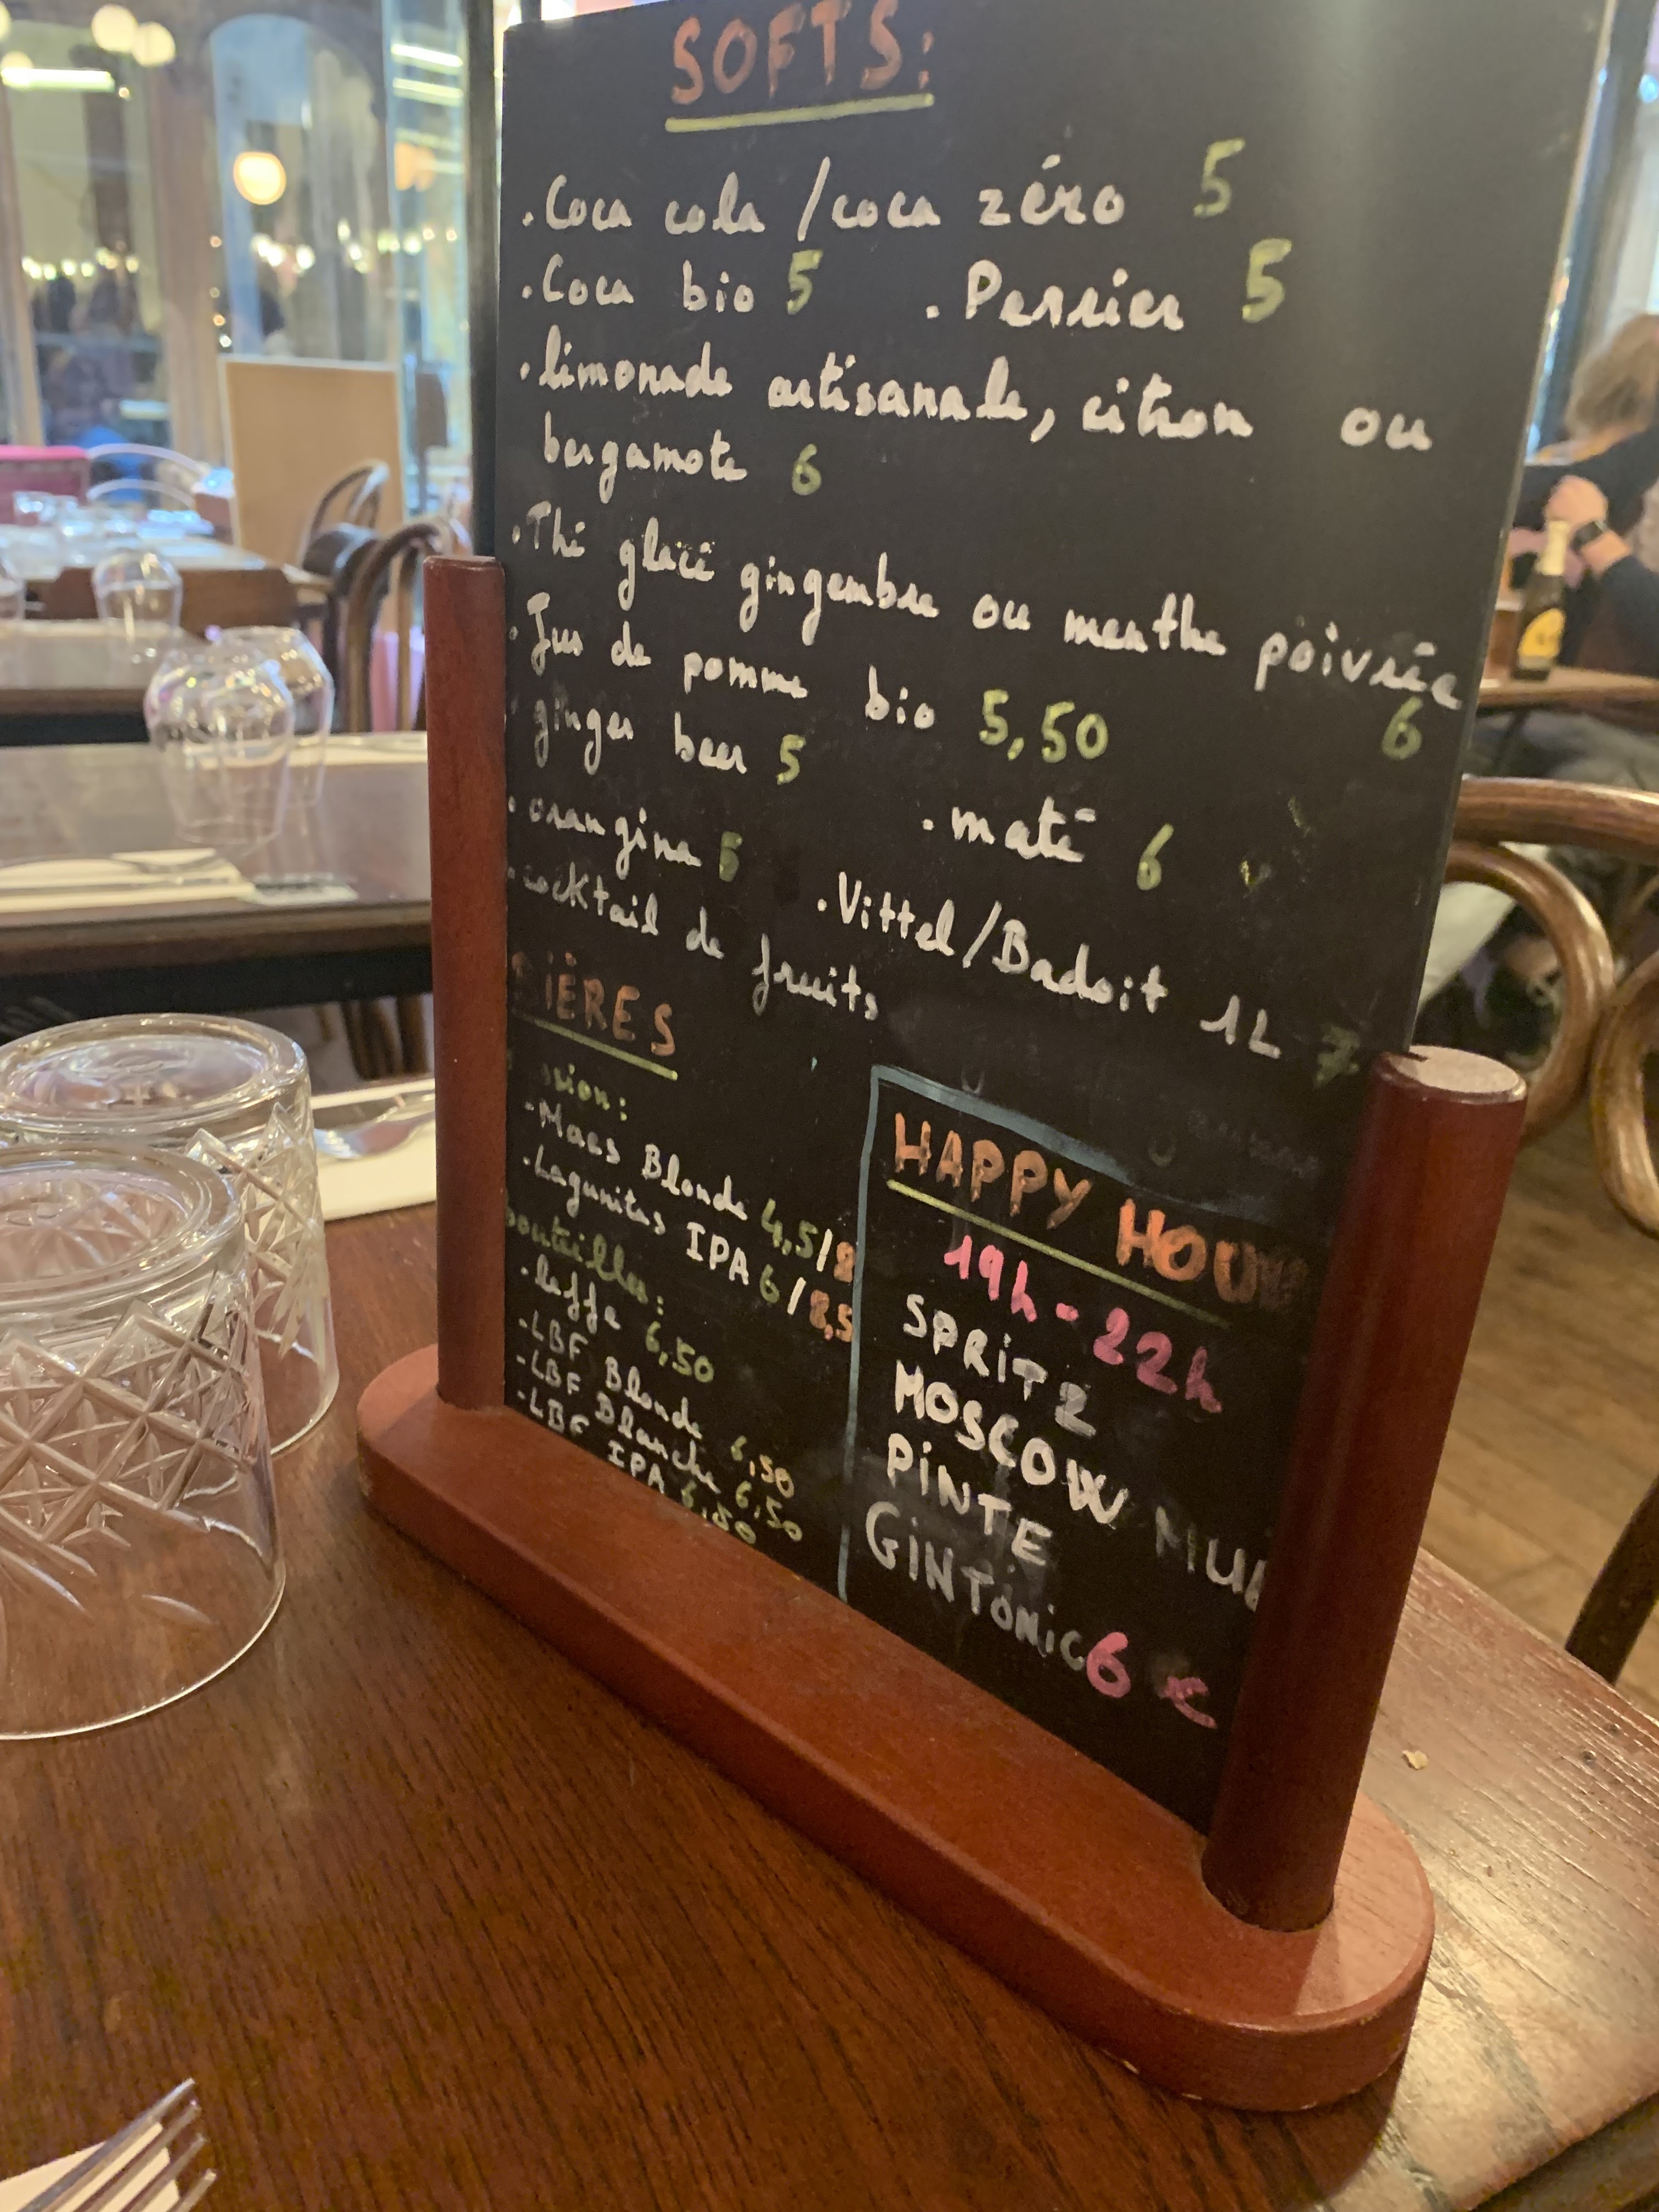 SOFTS:
. Coca cola / coca zéro 5
. Coca bio 5 . Perrier 5
. limonade artisanale, citron ou
bergamote 6
. Thé glacé gingembre ou menthe poivrée
6
. Jus de pomme bio 5,50
ginger beer 5
. maté 6
. orangina 5
. Vittel/Badoit 1L 7
. cocktail de fruits
BIÈRES
sion:
- Maes Blonde 4,5/8
- Lagunitas IPA 6/8,5
bouteilles:
- leffe 6,50
- LBF Blonde 6,50
- LBF Blanche 6,50
- LBF IPA 6,50
HAPPY HOUR
19h - 22h
SPRITZ
MOSCOW MUL
PINTE
GINTONIC 6 €